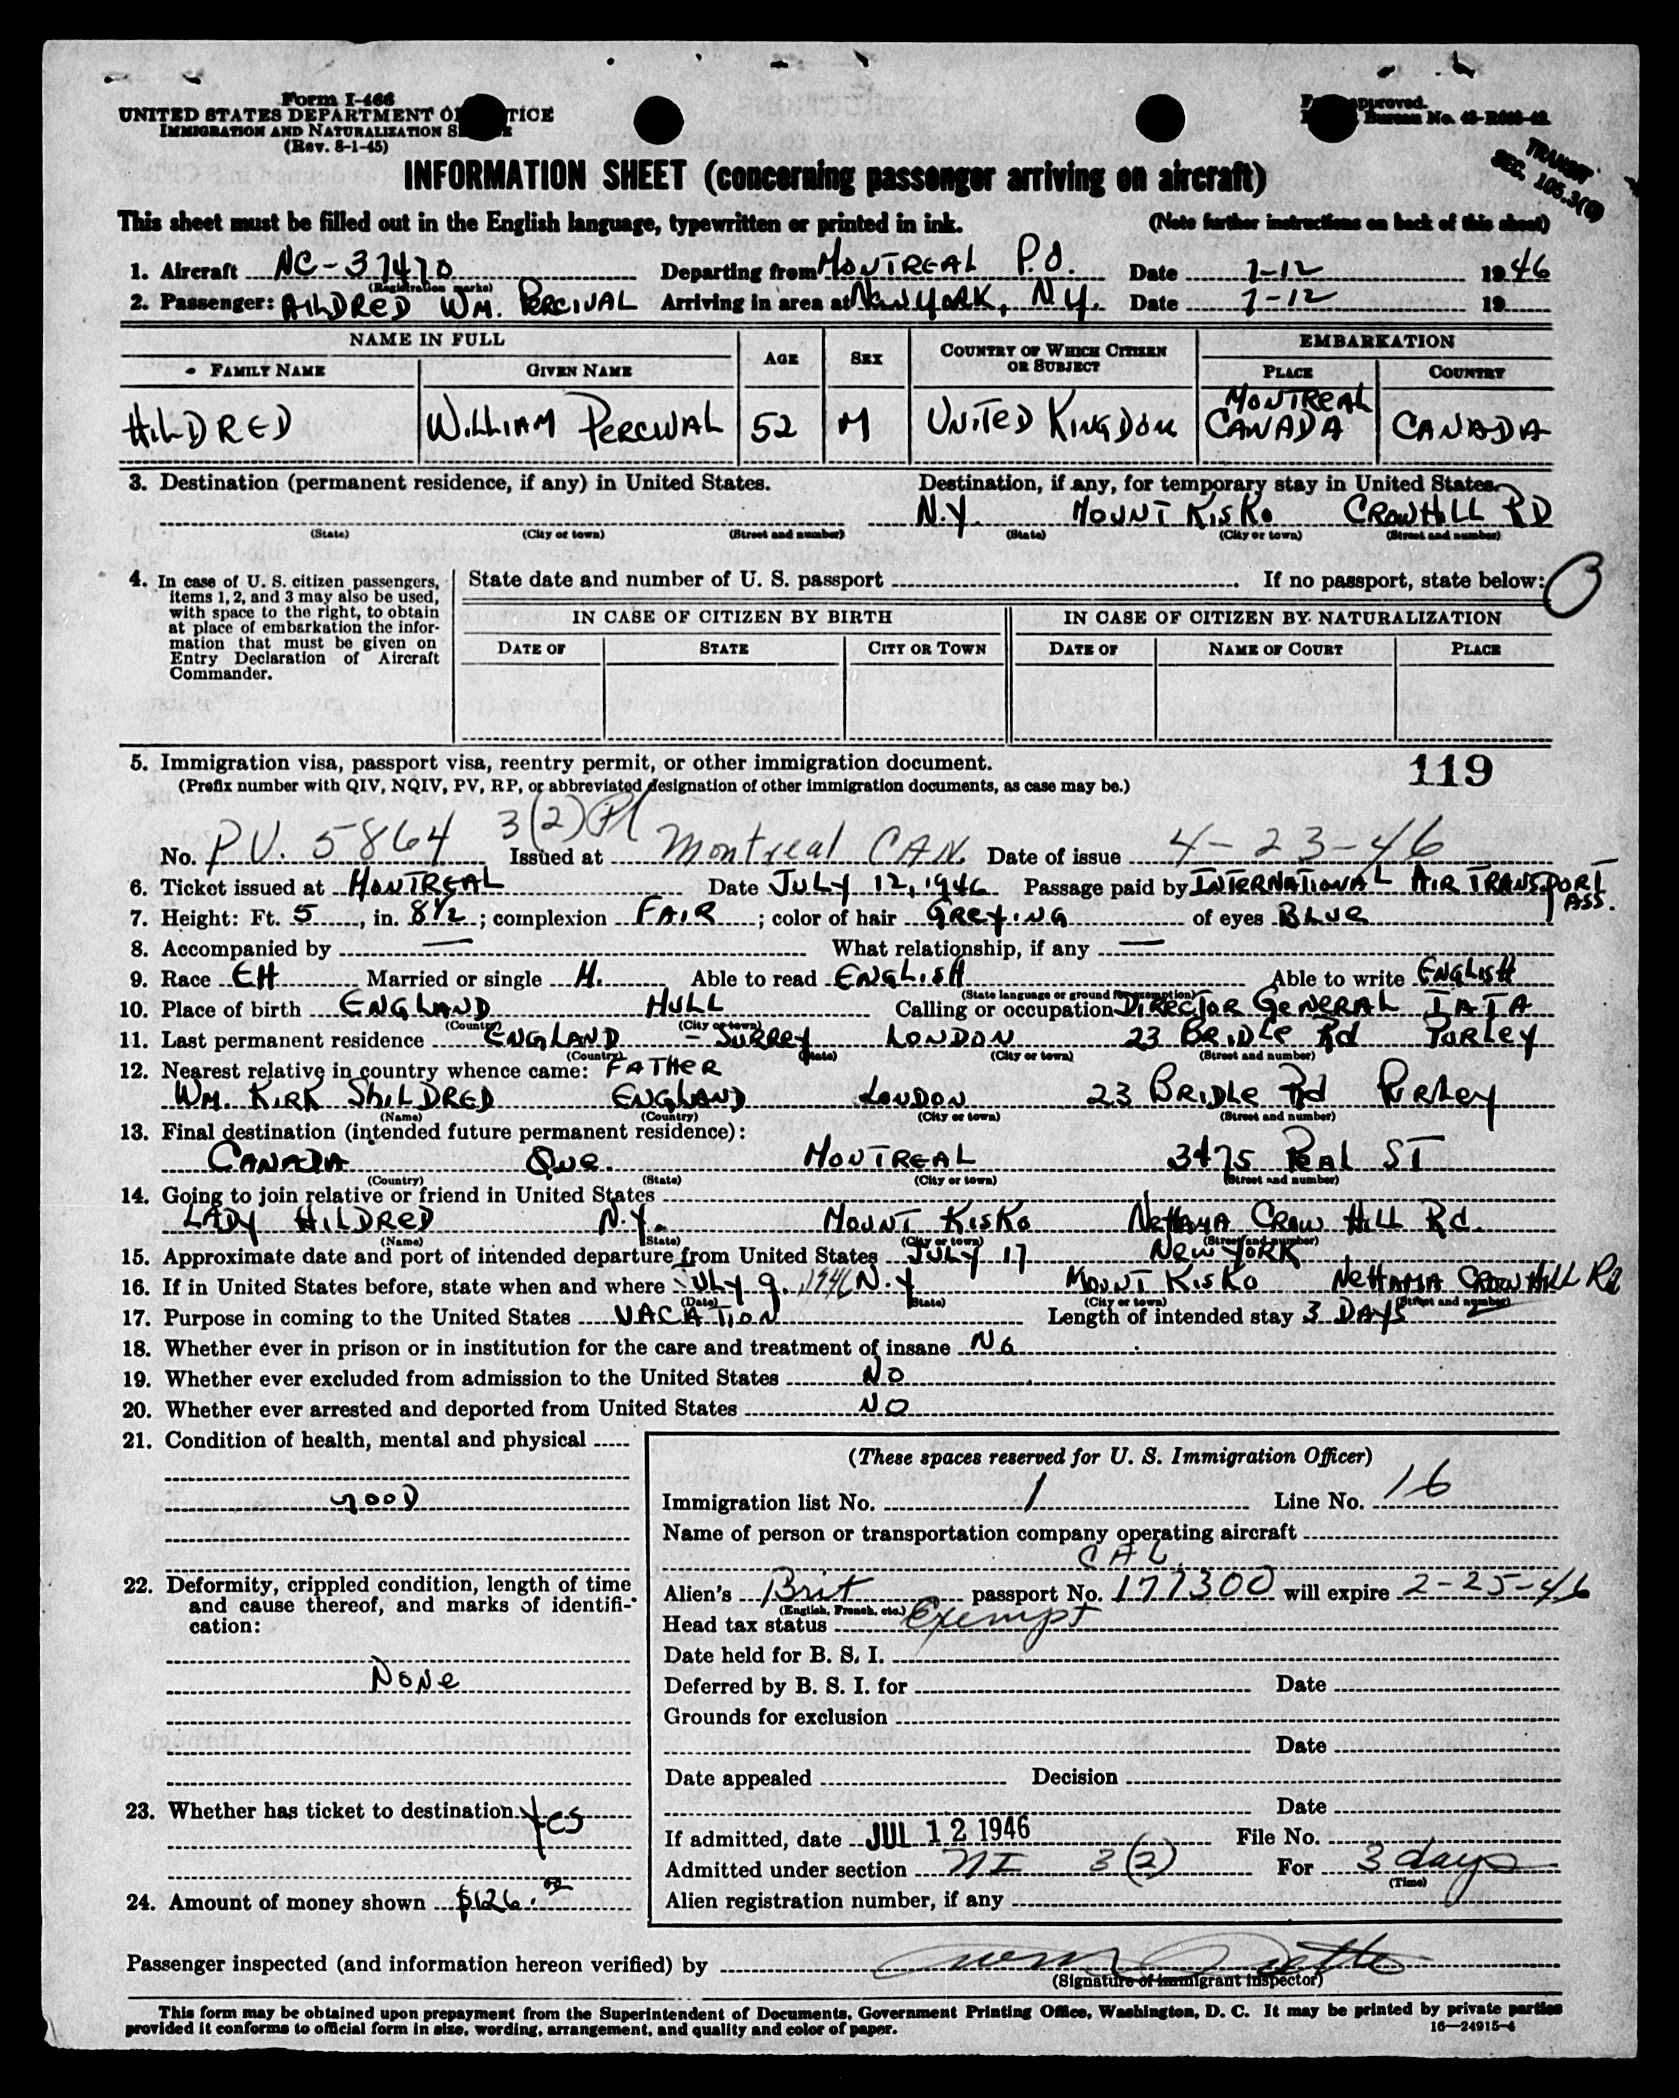 Form I-466
UNITED STATES DEPARTMENT OF JUSTICE
IMMIGRATION AND NATURALIZATION SERVICE
(Rev. 8-1-45)
Form approved.
Bureau No.
TRANSIT
SEC. 105.3(
INFORMATION SHEET (concerning passenger arriving on aircraft)
This sheet must be filled out in the English language, typewritten or printed in ink. (Note further instructions on back of this sheet)
1. Aircraft NC-37470 Departing from MONTREAL P.Q. Date 7-12 1946
(Registration marks)
2. Passenger: HILDRED WM. PERCIVAL Arriving in area at NEW YORK, N.Y. Date 7-12 19
NAME IN FULL AGE SEX COUNTRY OF WHICH CITIZEN OR SUBJECT EMBARKATION
FAMILY NAME GIVEN NAME PLACE COUNTRY
HILDRED WILLIAM PERCIVAL 52 M UNITED KINGDOM MONTREAL CANADA CANADA
3. Destination (permanent residence, if any) in United States. Destination, if any, for temporary stay in United States.
N.Y. MOUNT KISKO CROWHILL RD
(State) (City or town) (Street and number) (State) (City or town) (Street and number)
4. In case of U. S. citizen passengers, items 1, 2, and 3 may also be used, with space to the right, to obtain at place of embarkation the information that must be given on Entry Declaration of Aircraft Commander.
State date and number of U. S. passport If no passport, state below:
IN CASE OF CITIZEN BY BIRTH IN CASE OF CITIZEN BY NATURALIZATION
DATE OF STATE CITY OR TOWN DATE OF NAME OF COURT PLACE
5. Immigration visa, passport visa, reentry permit, or other immigration document. 119
(Prefix number with QIV, NQIV, PV, RP, or abbreviated designation of other immigration documents, as case may be.)
No. P.V. 5864 3(2) Pl Issued at Montreal CAN. Date of issue 4-23-46
6. Ticket issued at MONTREAL Date JULY 12, 1946 Passage paid by INTERNATIONAL AIR TRANSPORT ASS.
7. Height: Ft. 5, in. 8½; complexion FAIR; color of hair GREYING of eyes BLUE
8. Accompanied by — What relationship, if any —
9. Race EH Married or single M. Able to read ENGLISH Able to write ENGLISH
(State language or ground for exemption)
10. Place of birth ENGLAND HULL Calling or occupation DIRECTOR GENERAL IATA
(Country) (City or town)
11. Last permanent residence ENGLAND - SURREY LONDON 23 BRIDLE Rd PURLEY
(Country) (State) (City or town) (Street and number)
12. Nearest relative in country whence came: FATHER
WM. KIRK SHILDRED ENGLAND LONDON 23 BRIDLE Rd PURLEY
(Name) (Country) (City or town) (Street and number)
13. Final destination (intended future permanent residence):
CANADA QUE. MONTREAL 3475 Peal ST
(Country) (State) (City or town) (Street and number)
14. Going to join relative or friend in United States
LADY HILDRED N.Y. MOUNT KISKO NETTAMA CROW HILL Rd.
(Name) (State) (City or town) (Street and number)
15. Approximate date and port of intended departure from United States JULY 17 NEW YORK
16. If in United States before, state when and where JULY 9. 1946 N.Y MOUNT KISKO NETTAMA CROWHILL Rd
(Date) (State) (City or town) (Street and number)
17. Purpose in coming to the United States VACATION Length of intended stay 3 DAYS
18. Whether ever in prison or in institution for the care and treatment of insane NO
19. Whether ever excluded from admission to the United States NO
20. Whether ever arrested and deported from United States NO
21. Condition of health, mental and physical
GOOD
22. Deformity, crippled condition, length of time and cause thereof, and marks of identification:
NONE
23. Whether has ticket to destination Yes
24. Amount of money shown $126.00
(These spaces reserved for U. S. Immigration Officer)
Immigration list No. 1 Line No. 16
Name of person or transportation company operating aircraft
CAL
Alien's Brit passport No. 177300 will expire 2-25-46
(English, French, etc.)
Head tax status Exempt
Date held for B. S. I.
Deferred by B. S. I. for Date
Grounds for exclusion
Date
Date appealed Decision
Date
If admitted, date JUL 12 1946 File No.
Admitted under section NI 3(2) For 3 days
(Time)
Alien registration number, if any
Passenger inspected (and information hereon verified) by
(Signature of immigrant inspector)
This form may be obtained upon prepayment from the Superintendent of Documents, Government Printing Office, Washington, D. C. It may be printed by private parties
provided it conforms to official form in size, wording, arrangement, and quality and color of paper. 16—24915-4